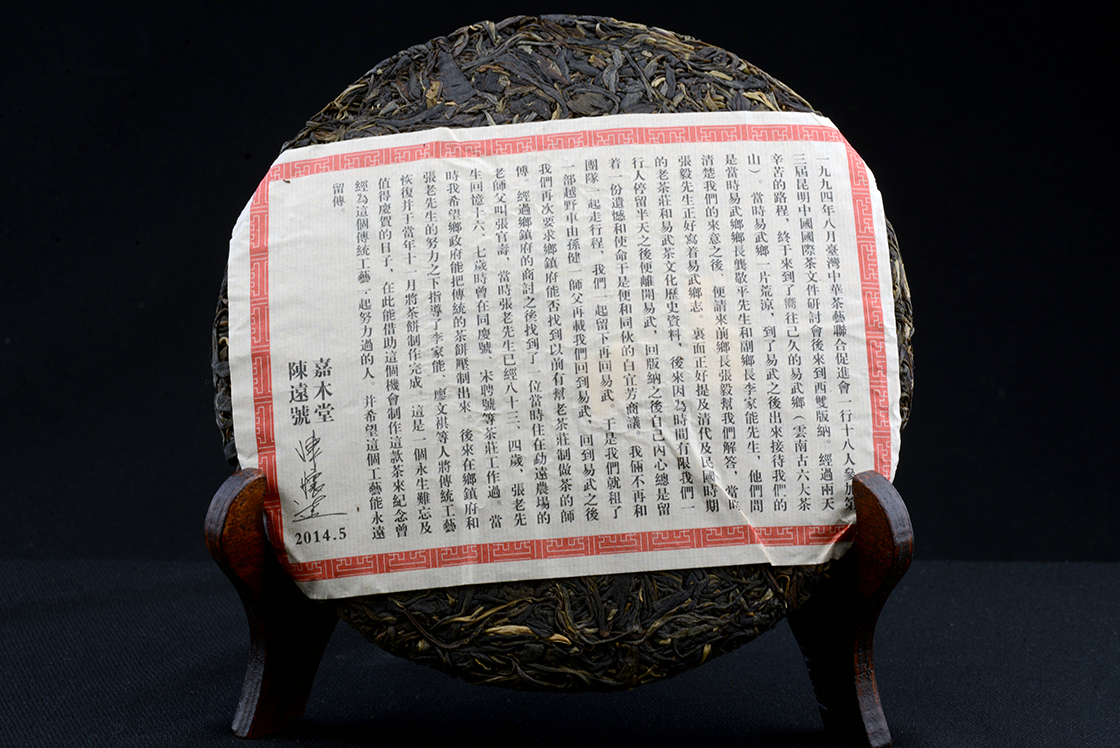 一九九四年八月臺灣中華茶藝聯合促進會一行十八人參加第
三屆昆明中國國際茶文件研討會後來到西雙版納。經過兩天
辛苦的路程，終于來到了嚮往已久的易武鄉（雲南古六大茶
山）。當時易武鄉一片荒涼，到了易武之後出來接待我們的
是當時易武鄉鄉長龔敬平先生和副鄉長李家能先生，他們問
清楚我們的來意之後，便請來前鄉長張毅幫我們解答，當時
張毅先生正好寫着易武鄉志，裏面正好提及清代及民國時期
的老茶莊和易武茶文化歷史資料，後來因為時間有限我們一
行人停留半天之後便離開易武，回版納之後自己內心總是留
着一份遺憾和使命于是便和同伙的白宜芳商議，我倆不再和
團隊一起走行程，我們一起留下再回易武，于是我們就租了
一部越野車由孫健一師父再載我們回到易武，回到易武之後
我們再次要求鄉鎮府能否找到以前有幫老茶莊制做茶的師
傅。經過鄉鎮府的商討之後找到了一位當時住在勐遠農場的
老師父叫張官壽，當時張老先生已經八十三、四歲，張老先
生回憶十六、七歲時曾在同慶號、宋聘號等茶莊工作過。當
時我希望鄉政府能把傳統的茶餅壓制出來，後來在鄉鎮府和
張老先生的努力之下指導了李家能，廖文祺等人將傳統工藝
恢復并于當年十一月將茶餅制作完成。這是一個永生難忘及
值得慶賀的日子，在此能借助這個機會制作這款茶來紀念曾
經為這個傳統工藝一起努力過的人。并希望這個工藝能永遠
留傳。
嘉木堂
陳遠號
2014.5